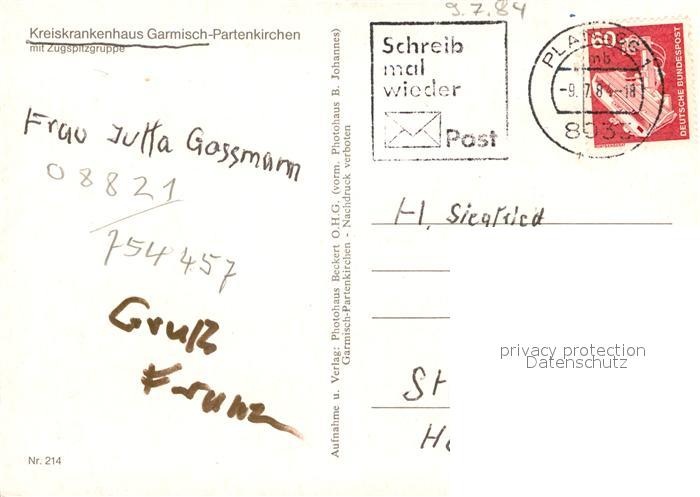 Kreiskrankenhaus Garmisch-Partenkirchen
mit Zugspitzgruppe
Frau Jutta Gassmann
08821/
754457
Gruß
Franz
Nr. 214
Aufnahme u. Verlag: Photohaus Beckert O.H.G. (vorm. Photohaus B. Johannes)
Garmisch-Partenkirchen - Nachdruck verboten
9.7.84
Schreib
mal
wieder
Post
PLANEGG 1
mb
-9.7.84-18
8033
60
DEUTSCHE BUNDESPOST
H. Siegfried
privacy protection
Datenschutz
St